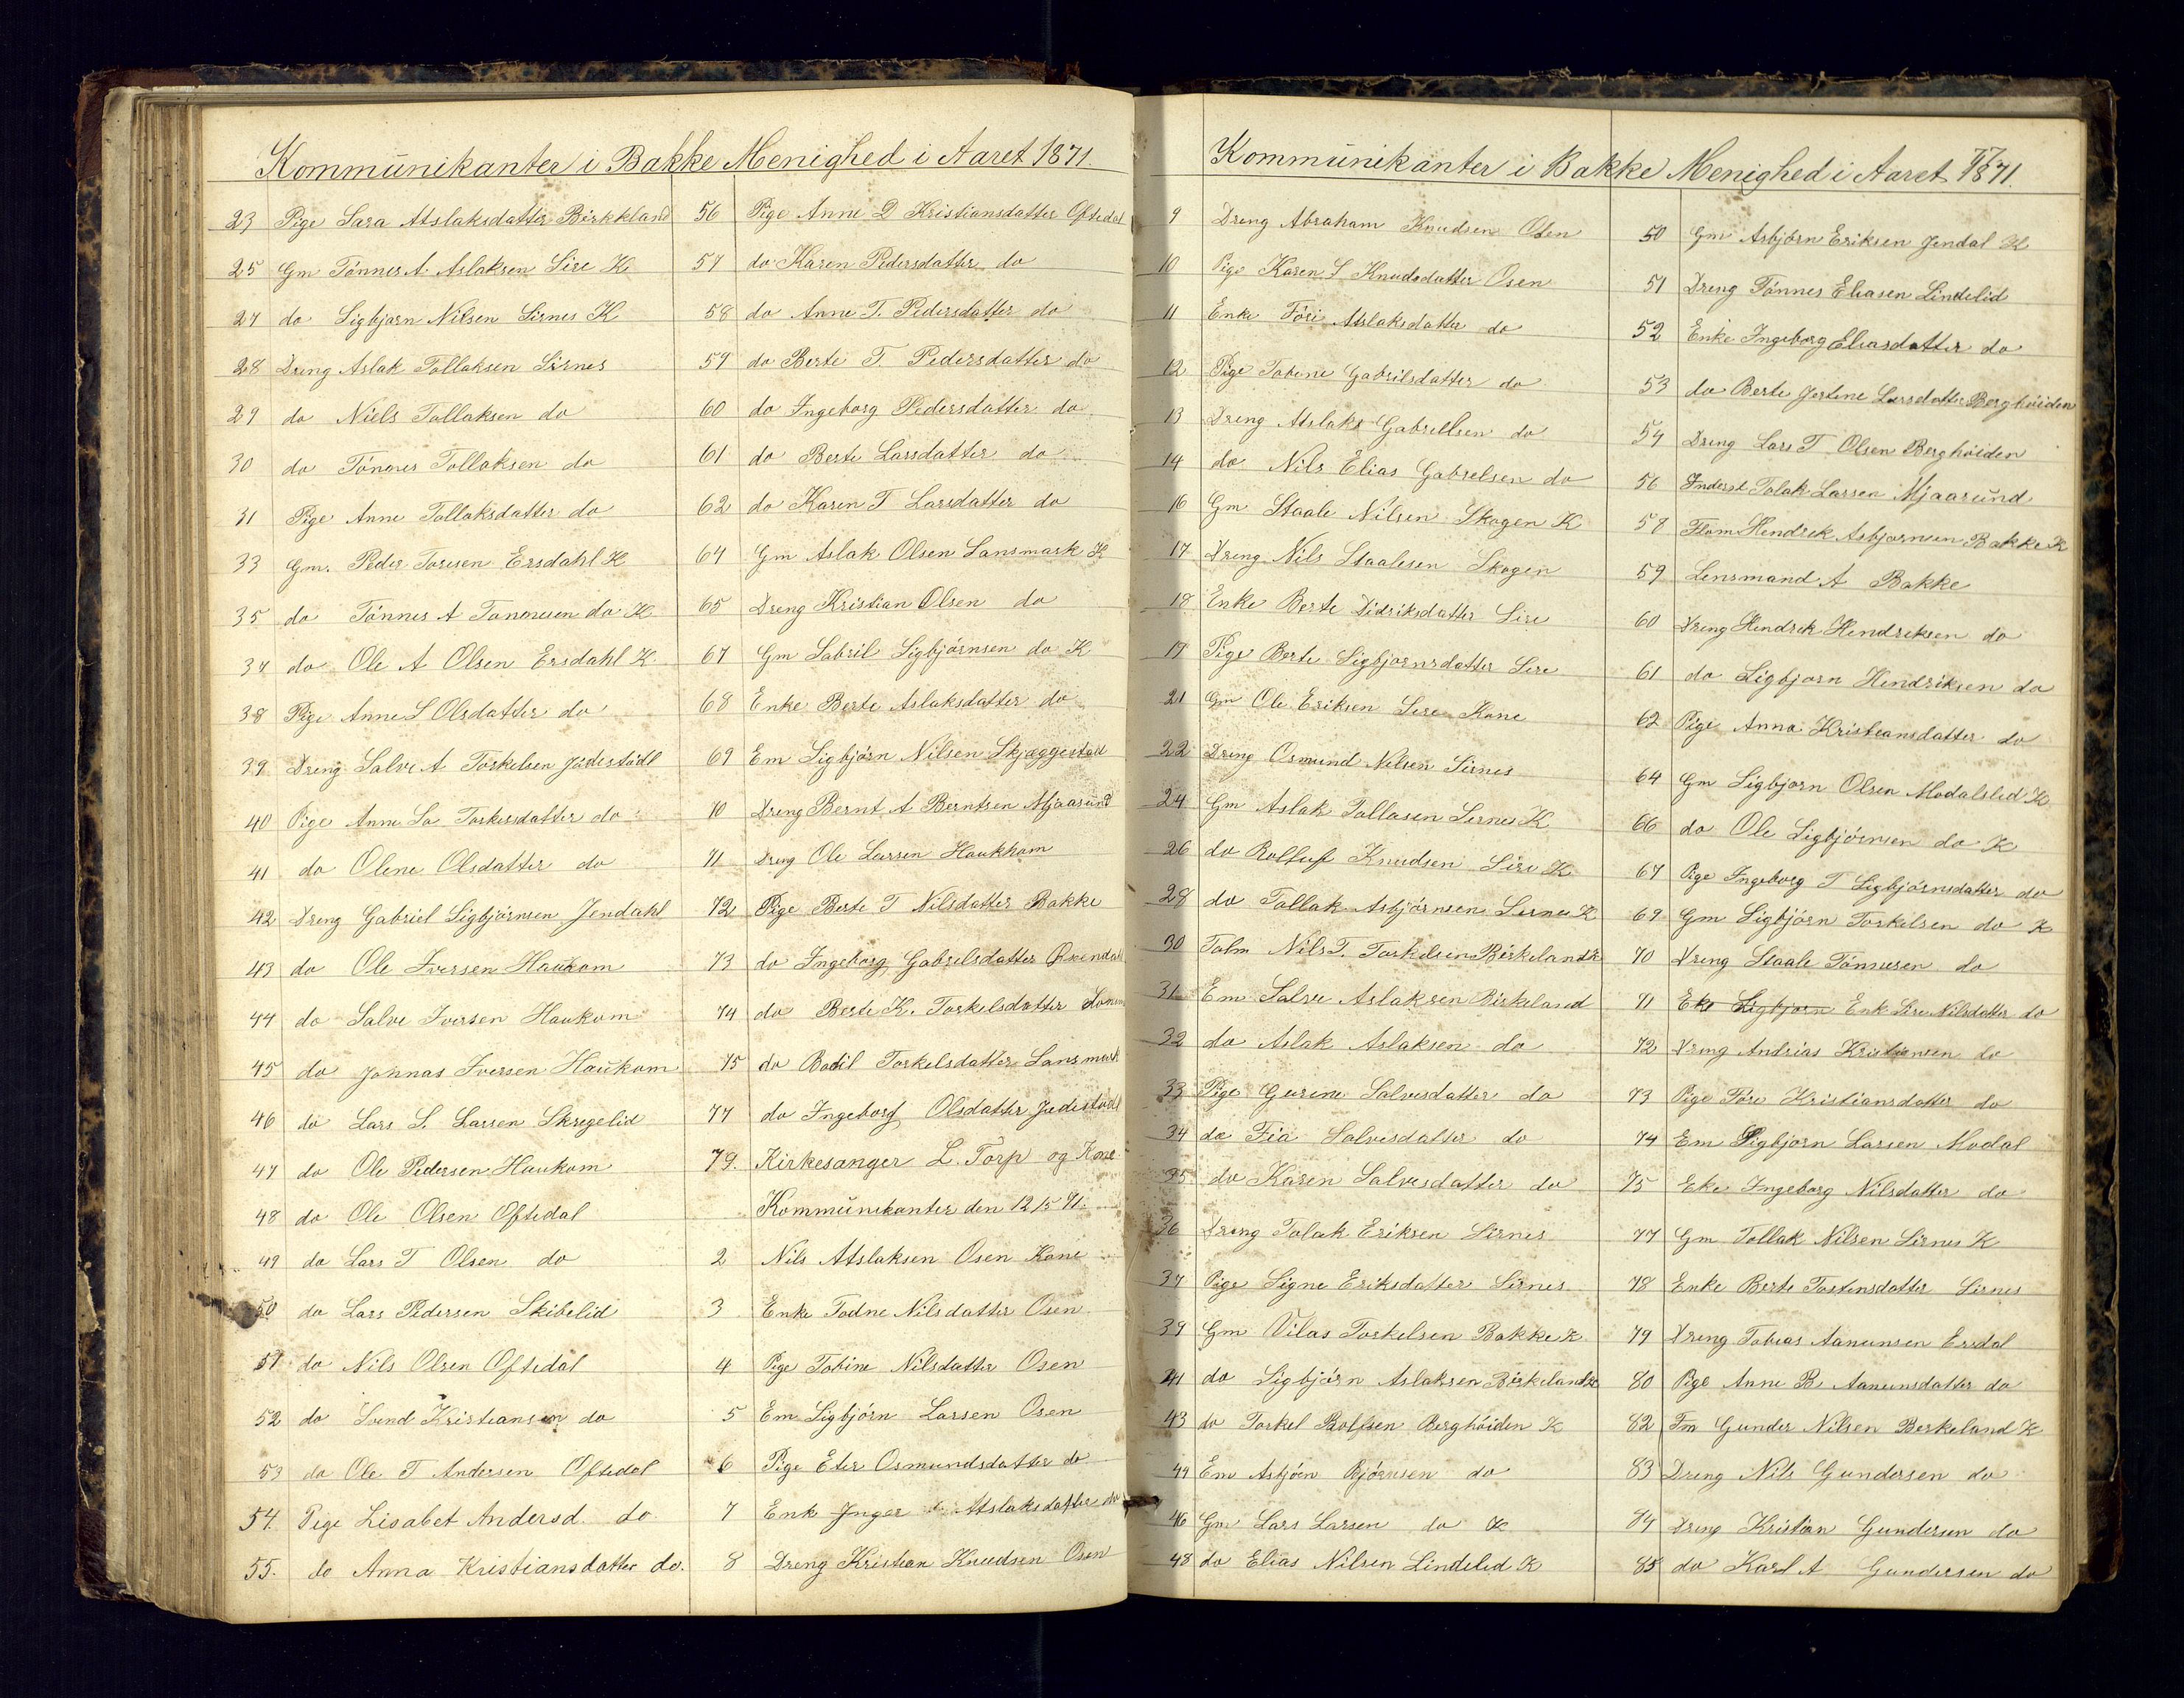 Kommunikanter i Bakke Menighed i Aaret 1871.
23 Pige Sara Atslaksdatter Birkkland
25 Gm Tönnes A. Aslaksen Sire K
27 do Sigbjørn Nilsen Sirnes K
28 Dreng Aslak Tollaksen Sirnes
29 do Niels Tollaksen do
30 do Tönnes Tollaksen do
31 Pige Anne Tollaksdatter do
33 Gm. Peder Toresen Ersdahl K
35 do Tönnes A Tonnesen do K
37 do Ole A Olsen Ersdahl K.
38 Pige Anne S Olsdatter do
39 Dreng Salve A Torkelsen Jødestødl
40 Pige Anne So Torkesdatter do
41 do Olene Olsdatter do
42 Dreng Gabriel Sigbjörnsen Jendahl
43 do Ole Iversen Haukom
44 do Salve Iversen Haukom
45 do Jonnas Iversen Haukom
46 do Lars S. Larsen Skregelid
47 do Ole Pedersen Haukom
48 do Ole Olsen Oftedal
49 do Lars T Olsen do
50 do Lars Pedersen Skibelid
51 do Nils Olsen Oftedal
52 do Svend Kristiansen do
53 do Ole T Andersen Oftedal
54. Pige Lisabet Andersd. do
55. do Anna Kristiansdatter do.
56 Pige Anne D Kristiansdatter Oftedal
57 do Karen Pedersdatter do
58 do Anne T. Pedersdatter do
59 do Berte T. Pedersdatter do
60 do Ingeborg Pedersdatter do
61 do Berte Larsdatter do
62 do Karen T Larsdatter do
64 Gm Aslak Olsen Lansmark K
65 Dreng Kristian Olsen do
67 Gm Gabril Sigbjörnsen do K
68 Enke Berte Aslaksdatter do
69 Em Sigbjörn Nilsen Skjæggestad
70 Dreng Bernt A Berntsen Mjaasund
71 Dreng Ole Larsen Haukhom
72 Pige Berte T Nilsdatter Bakke
73 do Ingeborg Gabrelsdatter
74 do Berte K. Torkelsdatter
75 do Bodil Torkelsdatter Lansmark
77 do Ingeborg Olsdatter Jødestødl
79. Kirkesanger L. Torp og Kone
Kommunikanter den 12/5 71.
2 Nils Atslaksen Osen Kone
3 Enke Todne Nilsdatter Osen
4 Pige Tobine Nilsdatter Osen
5 Em Sigbjörn Larsen Osen
6 Pige Eler Osmundsdatter do
7 Enk Inger Atslaksdatter do
8 Dreng Kristian Knudsen Osen
77
Kommunikanter i Bakke Menighed i Aaret 1871.
9 Dreng Abraham Knudsen Osen
10 Pige Karen S Knudsdatter Osen
11 Enke Töri Atslaksdatter do
12 Pige Tobine Gabrilsdatter do
13 Dreng Atslaks Gabrellsen do
14 do Nils Elias Gabrelsen do
16 Gm Staale Nilsen Skogen K
17 Dreng Nils Staalesen Skogen
18 Enke Berte Didriksdatter Sire
19 Pige Berte Sigbjørnsdatter Sire
21 Gm Ole Eriksen Sire Kone
22 Dreng Osmund Nilsen Sirnes
24 Gm Aslak Tollasen Sirnes K
26 do Rolluf Knudsen Sire K
28 do Tollak Asbjørnsen Sirnes K
30 Nils T. Torkelsen Birkeland K
31 Em Salve Aslaksen Birkeland
32 do Aslak Aslaksen do
33 Pige Gurine Salvesdatter do
34 do Fia Salvesdatter do
35 do Karen Salvesdatter do
36 Dreng Tolak Eriksen Sirnes
37 Pige Signe Eriksdatter Sirnes
39 Gm Vilas Torkelsen Bakke K
41 do Sigbjörn Aslaksen Birkeland K
43 do Torkel Rolfsen Berghöiden K
44 Em Asbjörn Bjørnsen do
46 Gm Lars Larsen do K
48 do Elias Nilsen Lindelid K
50 Gm Asbjörn Eriksen Jendal K
51 Dreng Tönnes Eliasen Lindelid
52 Enke Ingeborg Eliasdatter do
53 do Berte Jertine Larsdatter Berghöiden
54 Dreng Lars T Olsen Berghöiden
56 Inderst Tolak Larsen Mjaasund
58 Hendrek Asbjørnsen Bakke K
59 Lensmand A Bakke
60 Dreng Hendrek Hendreksen do
61 do Sigbjørn Hendriksen do
62 Pige Anna Kristiansdatter do
64 Gm Sigbjorn Olsen Modalslid K
66 do Ole Sigbjörnsen do K
67 Pige Ingeborg T Sigbjörnsdatter do
69 Gm Sigbjörn Torkilsen do K
70 Dreng Staale Tönnesen do
71 Eke Sigbjorn Enk Sire Nilsdatter do
72 Dreng Andrias Kristiansen do
73 Pige Töre Kristiansdatter do
74 Em Sigbjorn Larsen Modal
75 Eke Ingeborg Nilsdatter do
77 Gm Tollak Nilsen Sirnes K
78 Enke Berte Tostensdatter Sirnes
79 Dreng Tobias Aanunsen Ersdal
80 Pige Anne B Aanunsdatter do
82 Fm Gunder Nilsen Berkeland K
83 Dreng Nils Gundersen do
84 Dreng Kristian Gundersen do
85 do Karl A Gundersen do